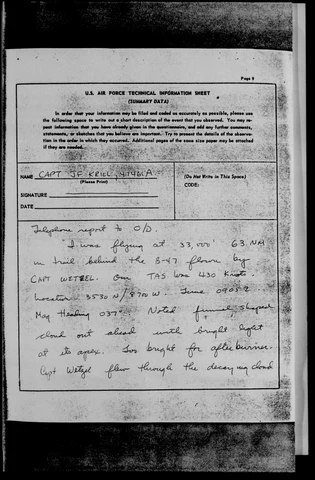 Page 9
U.S. AIR FORCE TECHNICAL INFORMATION SHEET
(SUMMARY DATA)
In order that your information may be filed and coded as accurately as possible, please use
the following space to write out a short description of the event that you observed. You may re-
peat information that you have already given in the questionnaire, and add any further comments,
statements, or sketches that you believe are important. Try to present the details of the observa-
tion in the order in which they occurred. Additional pages of the same size paper may be attached
if they are needed.
NAME CAPT J.F. KRILL
(Please Print)
SIGNATURE
DATE
(Do Not Write in This Space)
CODE:
Telephone report to O/D.
"I was flying at 33,000' 63 NM
in trail behind the B-47 flown by
CAPT WETZEL. Our TAS was 430 Knots.
Location 3530 N/8700 W. Time 0905 Z
Mag Heading 037° Noted funnel shaped
cloud out ahead with bright light
at its apex. Too bright for afterburner.
Capt Wetzel flew through the decaying cloud